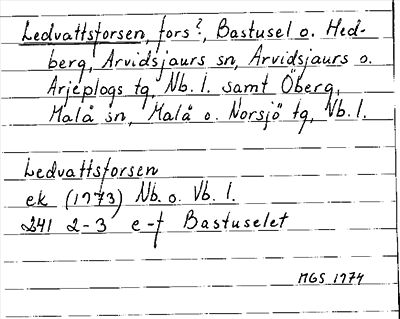 Ledvattsforsen, fors?, Bastusel o. Hed-
berg, Arvidsjaurs sn, Arvidsjaurs o.
Arjeplogs tg, Nb. l. samt Öberg,
Malå sn, Malå o. Norsjö tg, Vb. l.
Ledvattsforsen
ek (1973) Nb. o. Vb. l.
241 2-3 e-f Bastuselet
MGS 1974